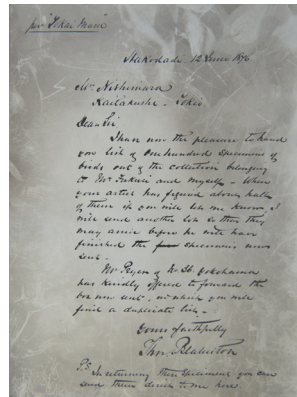 per "Tokai Maru"
Hakodadi 12 June 1876
Mr Nishimura
Kaitakushi - Tokio
Dear Sir
I have now the pleasure to hand
you list of One hundred Specimens of
birds out of the collection belonging
to Mr Fukusi and myself - When
your artist has figured about half
of them if you will let me know, I
will send another lot so that they
may arrive before he will have
finished the specimens now
sent.
Mr Pryer of No 36 Yokohama
has kindly offered to forward the
box now sent, in which you will
find a duplicate list.
Yours faithfully
Thos. Blakiston
P.S. In returning these specimens you can
send them direct to me here